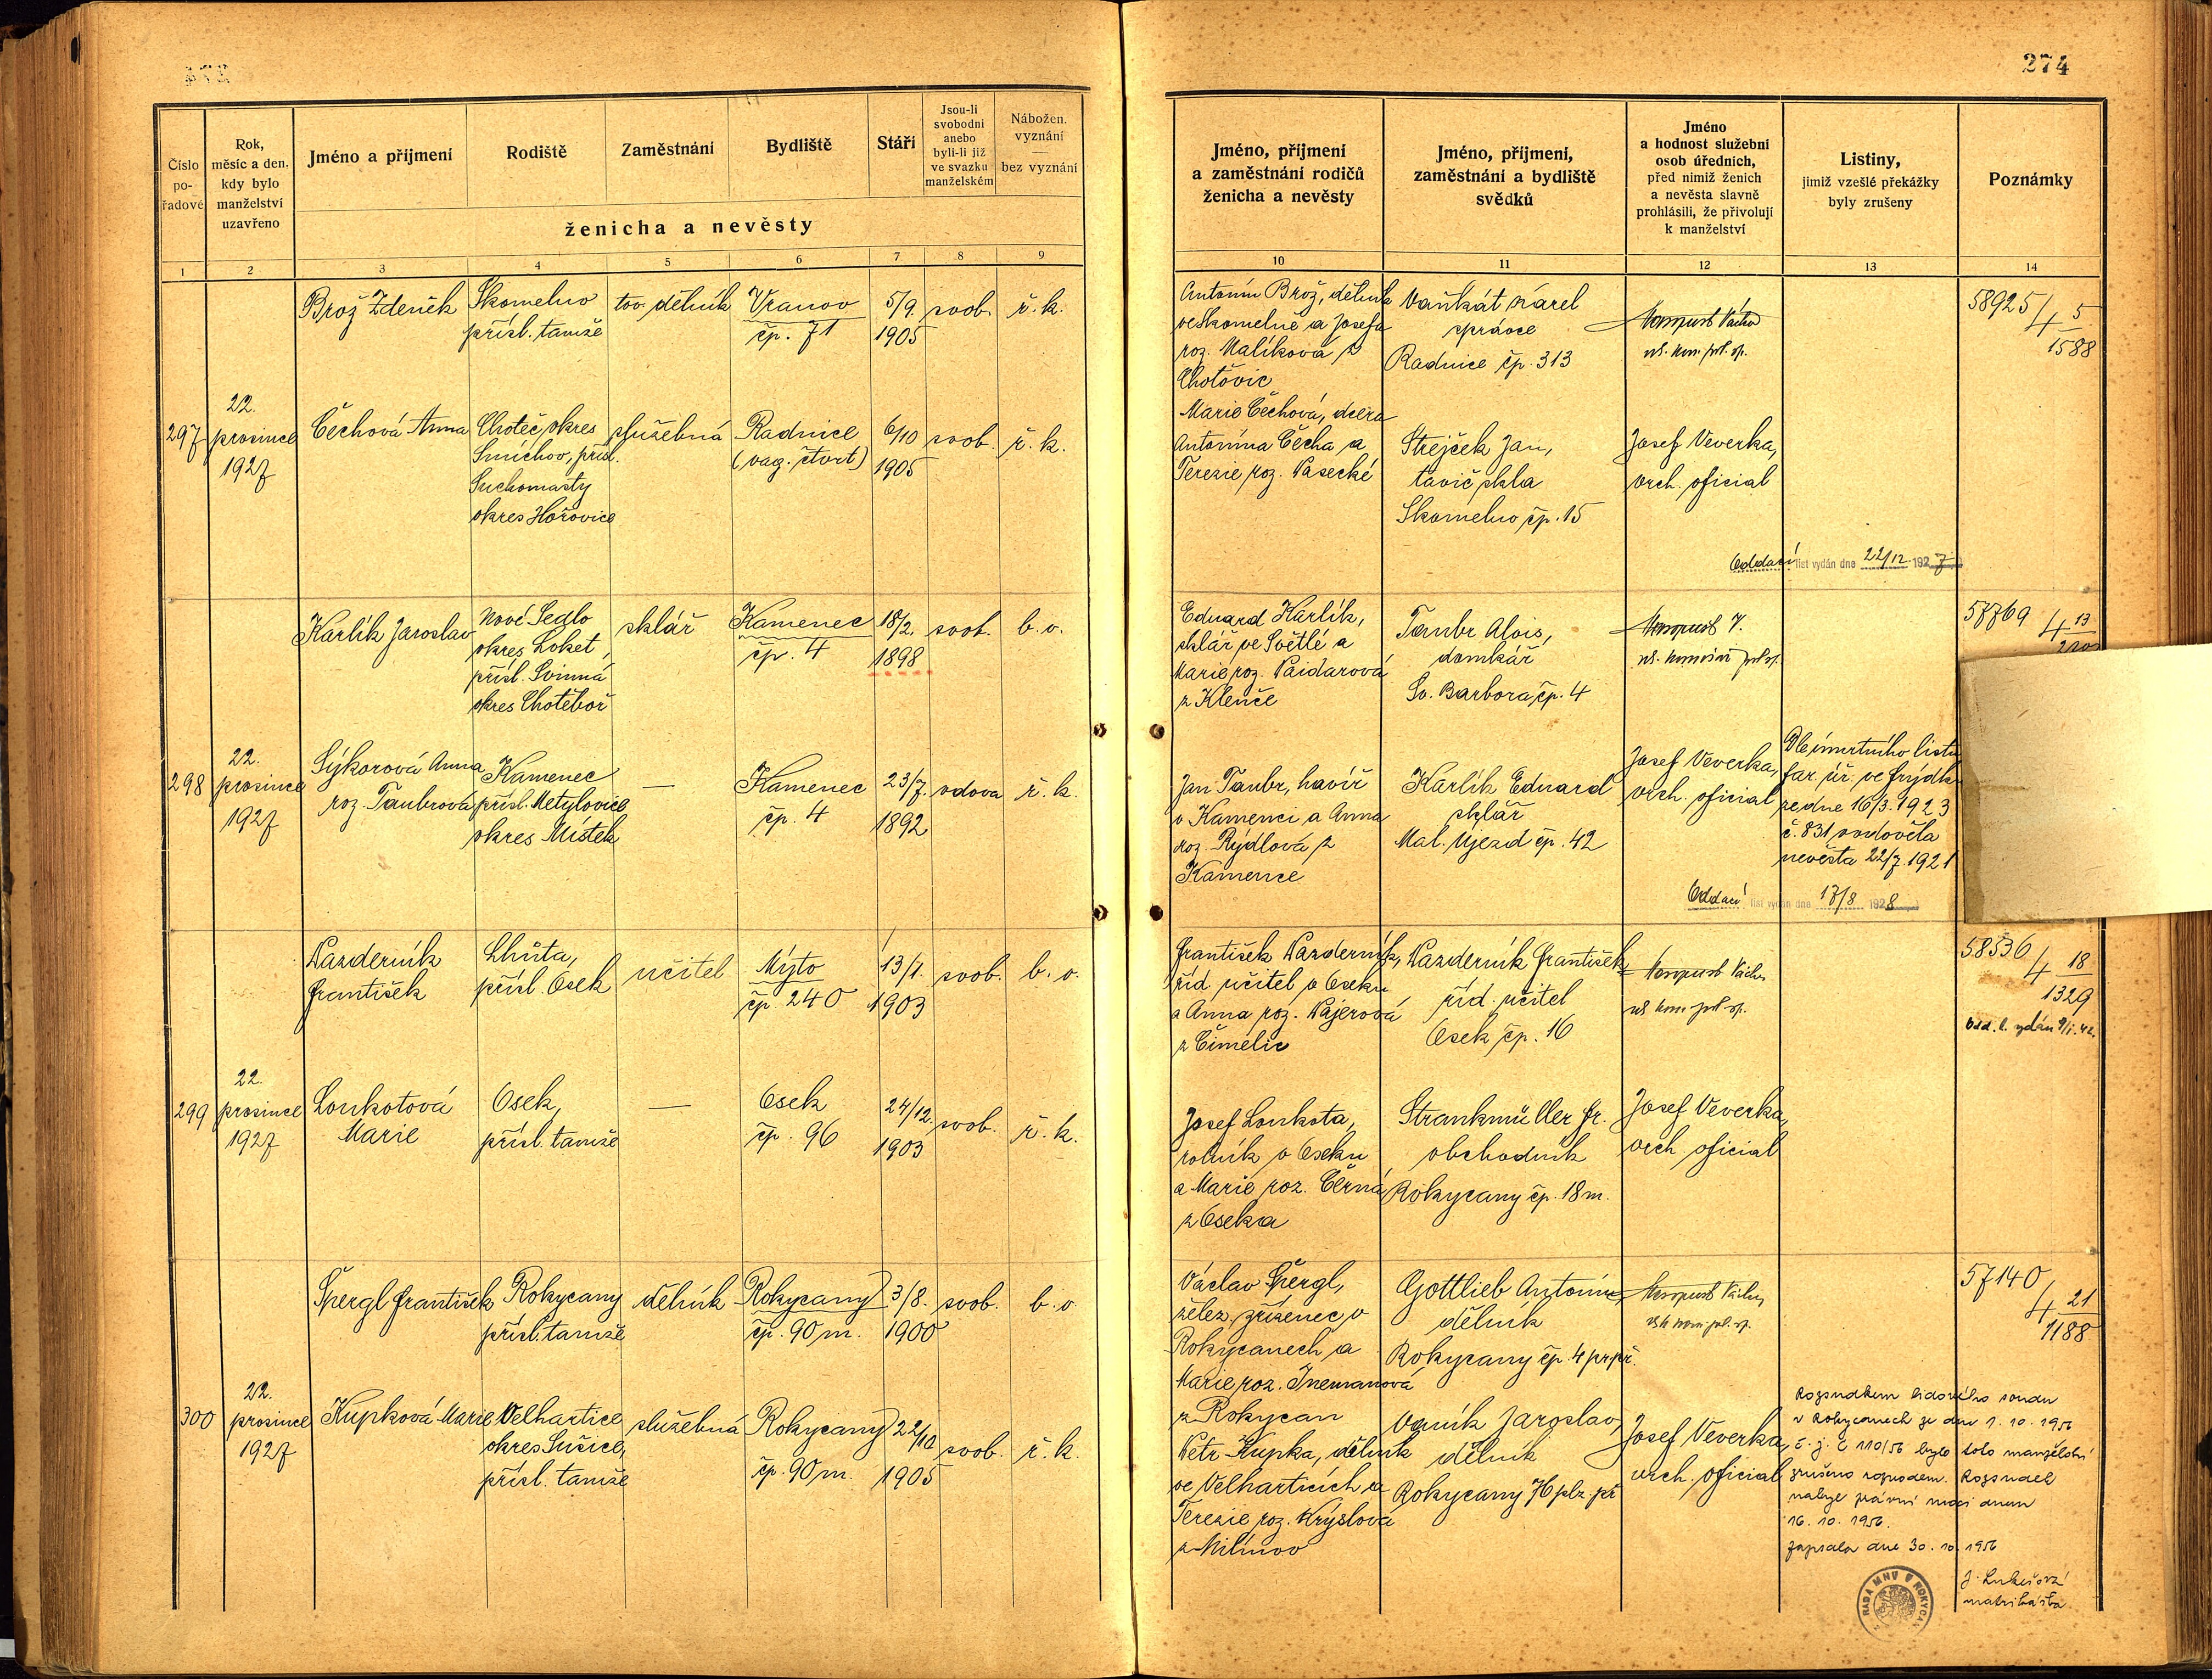 274
Číslo pořadové
Rok, měsíc a den, kdy bylo manželství uzavřeno
Jméno a příjmení
Rodiště
Zaměstnání
Bydliště
Stáří
Jsou-li svobodni anebo byli-li již ve svazku manželském
Nábožen. vyznání
bez vyznání
ženicha a nevěsty
1 2 3 4 5 6 7 8 9
Jméno, příjmení a zaměstnání rodičů ženicha a nevěsty
Jméno, příjmení, zaměstnání a bydliště svědků
Jméno a hodnost služební osob úředních, před nimiž ženich a nevěsta slavně prohlásili, že přivolují k manželství
Listiny, jimiž vzešlé překážky byly zrušeny
Poznámky
10 11 12 13 14
Brož Zdeněk
Skomelno
přísl. tamže
tov. dělník
Vranov
čp. 71
5/9.
1905
svob.
ř. k.
Antonín Brož, dělník
ve Skomelně a Josefa
roz. Malíková z
Chotovic
Vaňkát Karel
správce
Radnice čp. 313
58925
4 5
1588
297
22.
prosince
1927
Čechová Anna
Choteč, okres
Smíchov, přísl.
Suchomasty
okres Hořovice
služebná
Radnice
(vag. čtvrt)
6/10
1905
svob.
ř. k.
Marie Čechová, dcera
Antonína Čecha a
Terezie roz. Pasecké
Strejček Jan,
tavič skla
Skomelno čp. 15
Josef Veverka,
vrch. oficial
Oddací list vydán dne 22/12. 1927
Karlík Jaroslav
Nové Sedlo
okres Loket,
přísl. Svinná
okres Chotěboř
sklář
Kamenec
čp. 4
18/2.
1898
svob.
b. v.
Eduard Karlík,
sklář ve Světlé a
Marie roz. Paidarová
z Klenče
Taubr Alois,
domkář
Sv. Barbora čp. 4
57769
4 13
298
22.
prosince
1927
Sýkorová Anna
roz. Taubrová
Kamenec
přísl. Metylovice
okres Místek
—
Kamenec
čp. 4
23/7.
1892
vdova
ř. k.
Jan Taubr, havíř
v Kamenci a Anna
roz. Rýdlová z
Kamence
Karlík Eduard
sklář
Mal. Újezd čp. 42
Josef Veverka,
vrch. oficial
Dle úmrtního listu
far. úř. ve Frýdku
ze dne 16/3. 1923
č. 831 ovdověla
nevěsta 22/7. 1921
Oddací list vydán dne 17/8 1928
Nazderník
František
Lhůta,
přísl. Osek
učitel
Mýto
čp. 240
13/1.
1903
svob.
b. v.
František Nazderník,
říd. učitel v Oseku
a Anna roz. Pajerová
z Čimelic
Nazderník František
říd. učitel
Osek čp. 16
58536
4 18
1329
Odd. l. vydán 9/1. 42.
299
22.
prosince
1927
Loukotová
Marie
Osek,
přísl. tamže
—
Osek
čp. 96
24/12.
1903
svob.
ř. k.
Josef Loukota,
rolník v Oseku
a Marie roz. Černá
z Oseka
Strankmüller Fr.
obchodník
Rokycany čp. 18 m.
Josef Veverka,
vrch. oficial
Špergl František
Rokycany
přísl. tamže
dělník
Rokycany
čp. 90 m.
3/8.
1900
svob.
b. v.
Václav Špergl,
želez. zřízenec v
Rokycanech a
Marie roz. Inemanová
z Rokycan
Gottlieb Antonín,
dělník
Rokycany čp. 4 pr. př.
57140
4 21
1188
300
22.
prosince
1927
Kupková Marie
Velhartice
okres Sušice,
přísl. tamže
služebná
Rokycany
čp. 90 m.
22/10
1905
svob.
ř. k.
Petr Kupka, dělník
ve Velharticích a
Terezie roz. Krýslová
z Milínov
Vorník Jaroslav,
dělník
Rokycany 76 plz. př.
Josef Veverka,
vrch. oficial
Rozsudkem lidového soudu
v Rokycanech ze dne 1. 10. 1956
č. j. C 110/56 bylo toto manželství
zrušeno rozvodem. Rozsudek
nabyl právní moci dnem
16. 10. 1956.
Zapsala dne 30. 10. 1956
J. Lukešová
matrikářka
RADA MNV V ROKYCAN